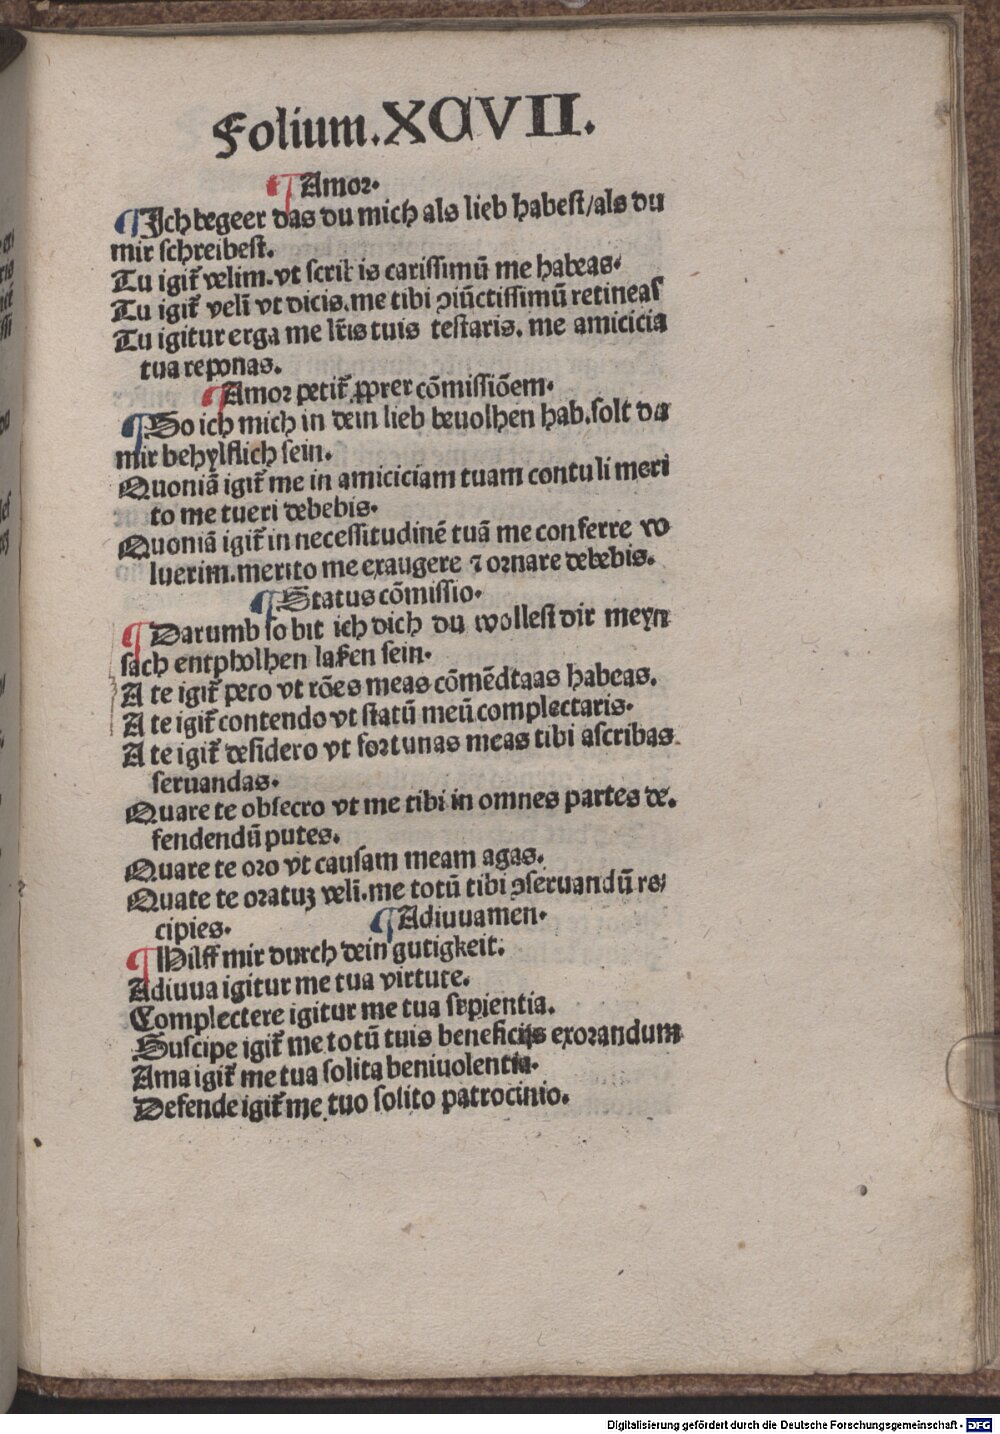 Folium.XCVII.
¶Amor.
¶Jch begeer das du mich als lieb habest/als du
mir schreibest.
Tu igit᷑ velim.vt scribis carissimū me habeas.
Tu igit᷑ veli᷑ vt dicis.me tibi ꝯiūctissimū retineas
Tu igitur erga me lr̄is tuis testaris. me amicicia
tua reponas.
¶Amor petit᷑ ꝓprer cōmissiōem.
¶So ich mich in dein lieb beuolhen hab.solt du
mir behylflich sein.
Quoniā igit᷑ me in amiciciam tuam contuli meri
to me tueri debebis.
Quoniā igit᷑ in necessitudinē tuā me conferre vo
luerim.merito me exaugere ⁊ ornare debebis.
¶Status cōmissio.
¶Darumb so bit ich dich du wollest dir meyn
sach entpholhen laßen sein.
A te igit᷑ peto vt rōes meas cōmēdtaas habeas.
A te igit᷑ contendo vt statū meū complectaris.
A te igit᷑ desidero vt fortunas meas tibi ascribas
seruandas.
Quare te obsecro vt me tibi in omnes partes de.
fendendū putes.
Quare te oro vt causam meam agas.
Quate te oratuꝫ veli᷑.me totū tibi ꝯseruandū re/
cipies. ¶Adiuuamen.
¶Hilff mir durch dein gutigkeit.
Adiuua igitur me tua virtute.
Complectere igitur me tua sepientia.
Suscipe igit᷑ me totū tuis beneficijs exorandum
Ama igit᷑ me tua solita beniuolentia.
Defende igit᷑ me tuo solito patrocinio.
Digitalisierung gefördert durch die Deutsche Forschungsgemeinschaft - DFG